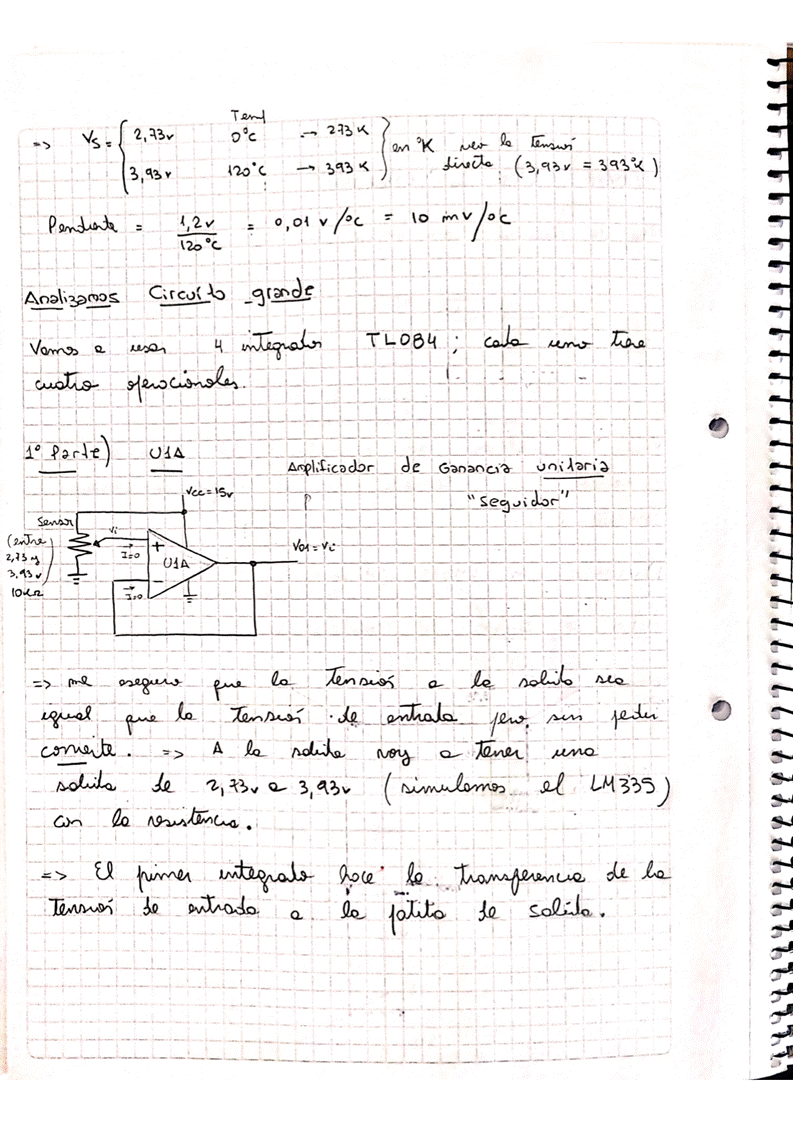 Temp
=> Vs = { 2,73v 0°c → 273 K
3,93v 120°c → 393 K } en °K veo la tensión directa (3,93v = 393°K)
Pendiente = 1,2v / 120°c = 0,01 v/°c = 10 mv/°c
Analizamos Circuíto grande
Vamos a usar 4 integrados TL084 ; cada uno tiene
cuatro operacionales.
1° Parte) U1A
Amplificador de Ganancia unitaria
"seguidor"
Vcc = 15v
Sensor
Vi
(entre
2,73 y
3,93v)
10KΩ
I=0
+
U1A
-
I=0
Vo1 = Vi
=> me aseguro que la Tensión a la salida sea
igual que la Tensión de entrada pero sin perder
corriente. => A la salida voy a tener una
salida de 2,73v a 3,93v (simulamos el LM335)
con la resistencia.
=> El primer integrado hace la transferencia de la
Tensión de entrada a la patita de salida.